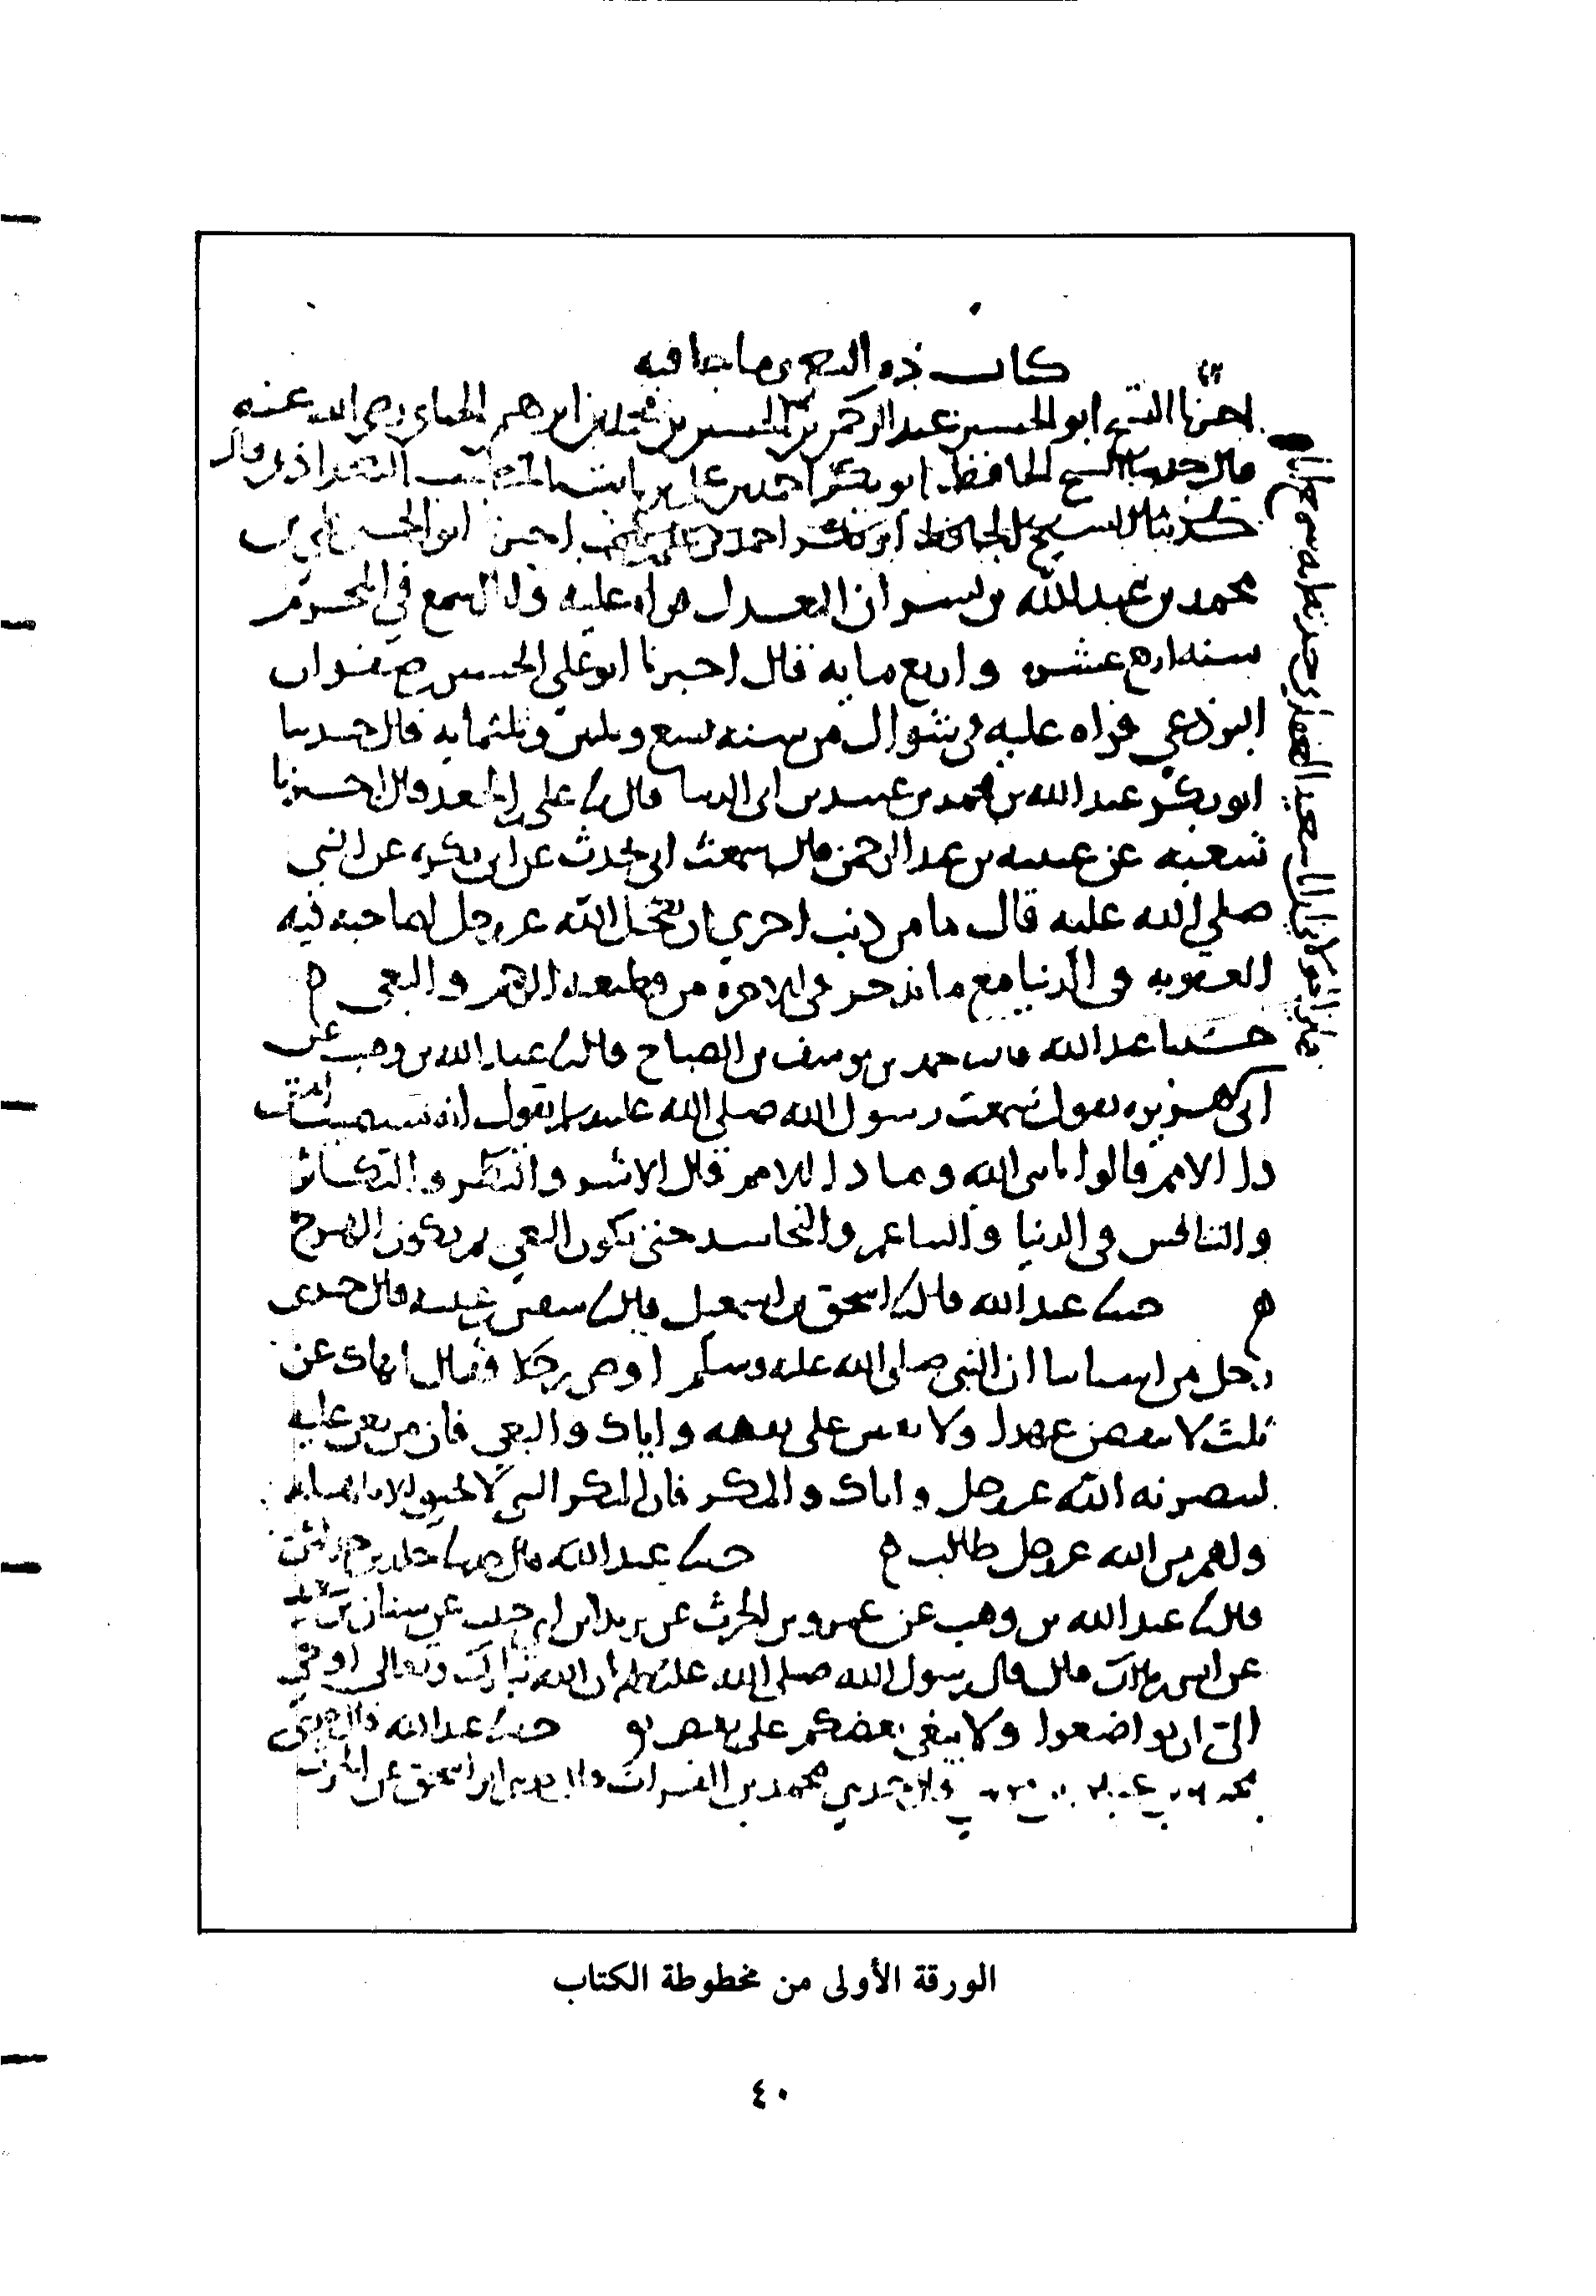 كتاب ذم البغي وما جا فيه
اخبرنا الشيخ ابو الحسين عبد الرحمن بن الحسين بن محمد بن ابرهيم رضي الله عنه
قال حدثنا الشيخ الحافظ ابو بكر احمد بن علي بن ثابت الخطيب البغداذي قال
الشيخ الحافظ ابو بكر احمد بن علي اخبرنا ابو الحسين علي بن
محمد بن عبد الله بن بسران المعدل قراه عليه وانا اسمع في المحرم
سنه اربع عشره واربع مايه قال اخبرنا ابو علي الحسين بن صفوان
البرذعي قراه عليه في شوال من سنه تسع وثلثين وثلثمايه قال حدثنا
ابو بكر عبد الله بن محمد بن عبيد بن ابي الدنيا قال علي بن الجعد قال اخبرنا
شعبه عن عيينه بن عبد الرحمن قال سمعت ابي يحدث عن ابي بكره عن النبي
صلي الله عليه قال ما من ذنب احري ان يعجل الله عز وجل لصاحبه فيه
العقوبه في الدنيا مع ما يدخر في الاخره من قطيعه الرحم والبغي
حدثنا عبد الله قال محمد بن يوسف بن الصباح قال عبد الله بن وهب عن
ابي هريره يقول سمعت رسول الله صلي الله عليه وسلم يقول انه سيصيب امتي
دا الامم قالوا يا نبي الله وما دا الامم قال الاشر والبطر والتكاثر
والتنافس في الدنيا والتباغض والتحاسد حتى يكون البغي ثم يكون الهرج
حدثنا عبد الله قال اسحق بن اسمعيل قال سفين بن عيينه قال حدثني
رجل من اشياخنا ان النبي صلى الله عليه وسلم اوصى رجلا فقال انهاك عن
ثلث لا تنقض عهدا ولا تعن على نقضه واياك والبغي فان من بغي عليه
لينصرنه الله عز وجل واياك والمكر فان المكر السي لا يحيق الا باهله
ولهم من الله عز وجل طالب حدثنا عبد الله قال حدثنا خالد بن خداش
قال عبد الله بن وهب عن عمرو بن الحرث عن يزيد بن ابي حبيب عن سنان بن سعد
عن انس بن مالك قال قال رسول الله صلى الله عليه وسلم ان الله تبارك وتعالى اوحى
الي ان تواضعوا ولا يبغي بعضكم على بعض حدثنا عبد الله قال حدثني
قال حدثني محمد بن الفرات قال حدثني ابو اسحق عن الحرث
الورقة الأولى من مخطوطة الكتاب
٤٠